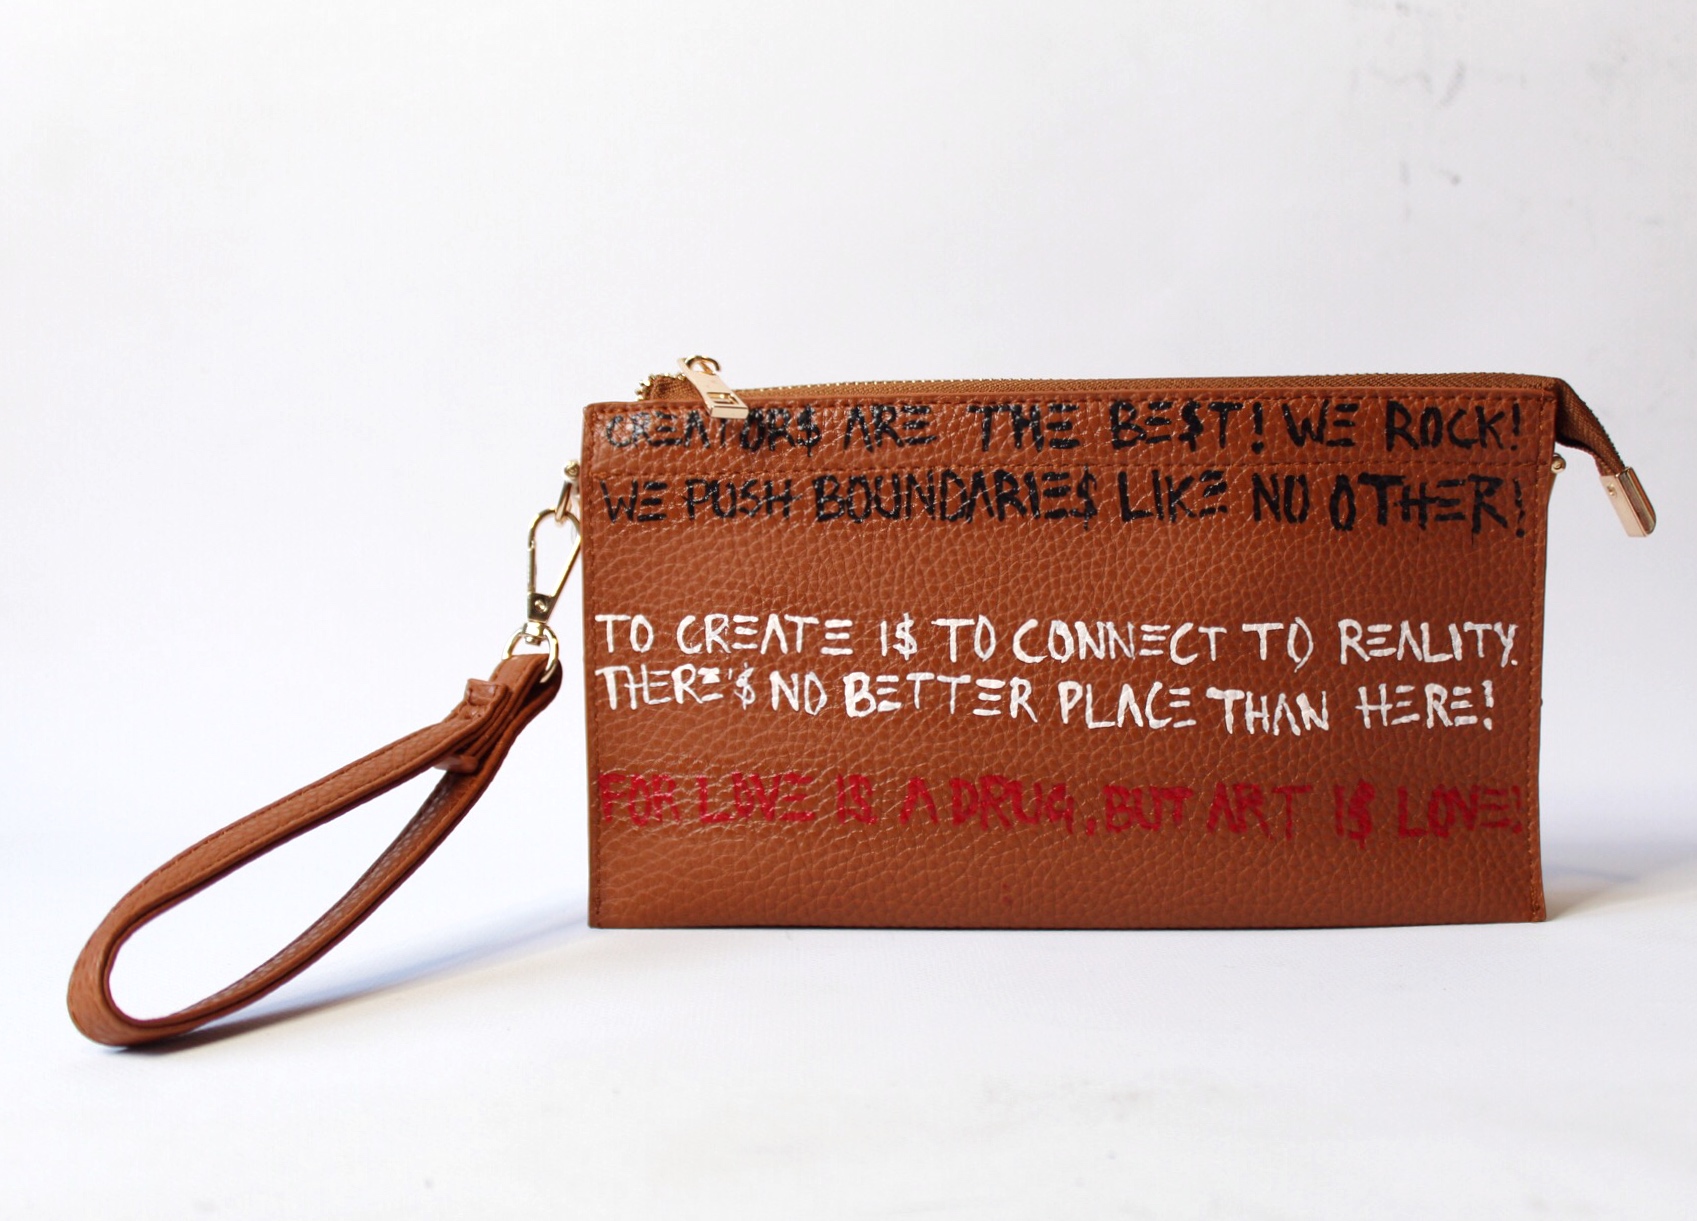 CREATOR$ ARE THE BE$T! WE ROCK!
WE PUSH BOUNDARIE$ LIKE NO OTHER!
TO CREATE I$ TO CONNECT TO REALITY.
THERE'$ NO BETTER PLACE THAN HERE!
FOR LOVE IS A DRUG, BUT ART I$ LOVE!